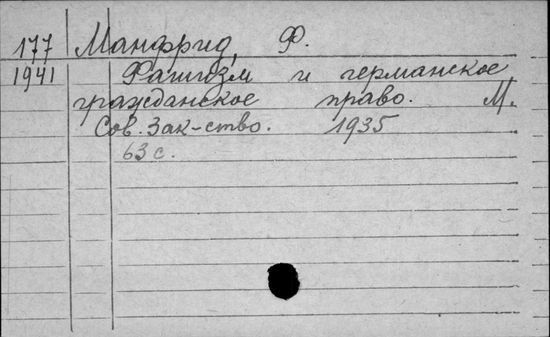 177 Манфрид, Ф.
1941 Фашизм и германское
гражданское право. М.
Сов. Зак-ство. 1935
63 с.